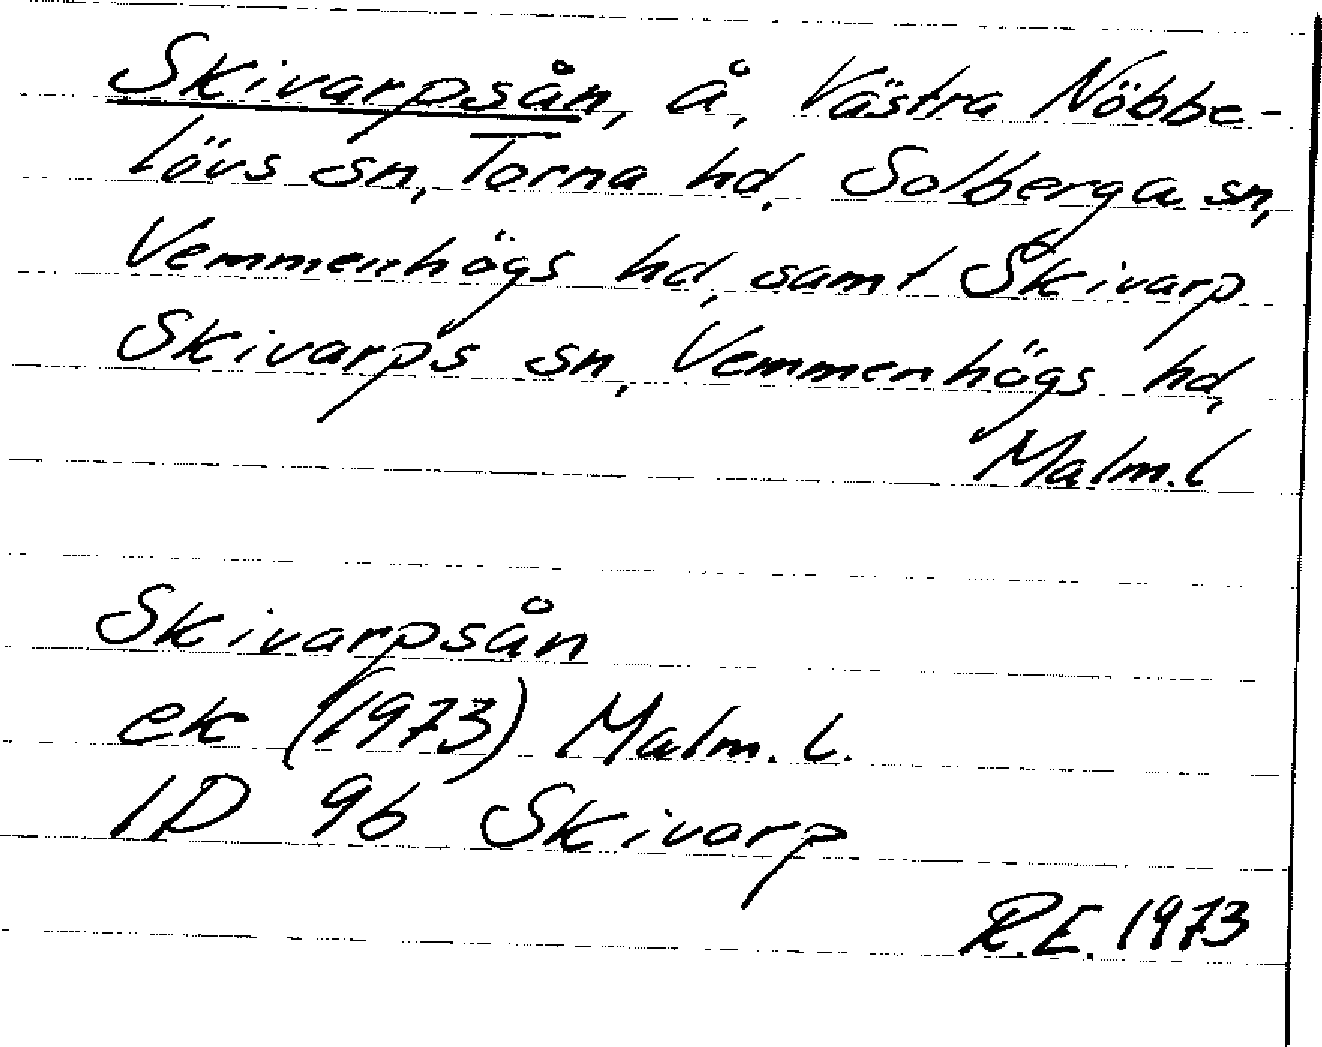 Skivarpsån, å, Västra Nöbbe-
lövs sn, Torna hd, Solberga sn,
Vemmenhögs hd, samt Skivarp
Skivarps sn, Vemmenhögs hd,
Malm.l
Skivarpsån
ek (1973) Malm. l.
1D 9b Skivarp
R.E. 1973